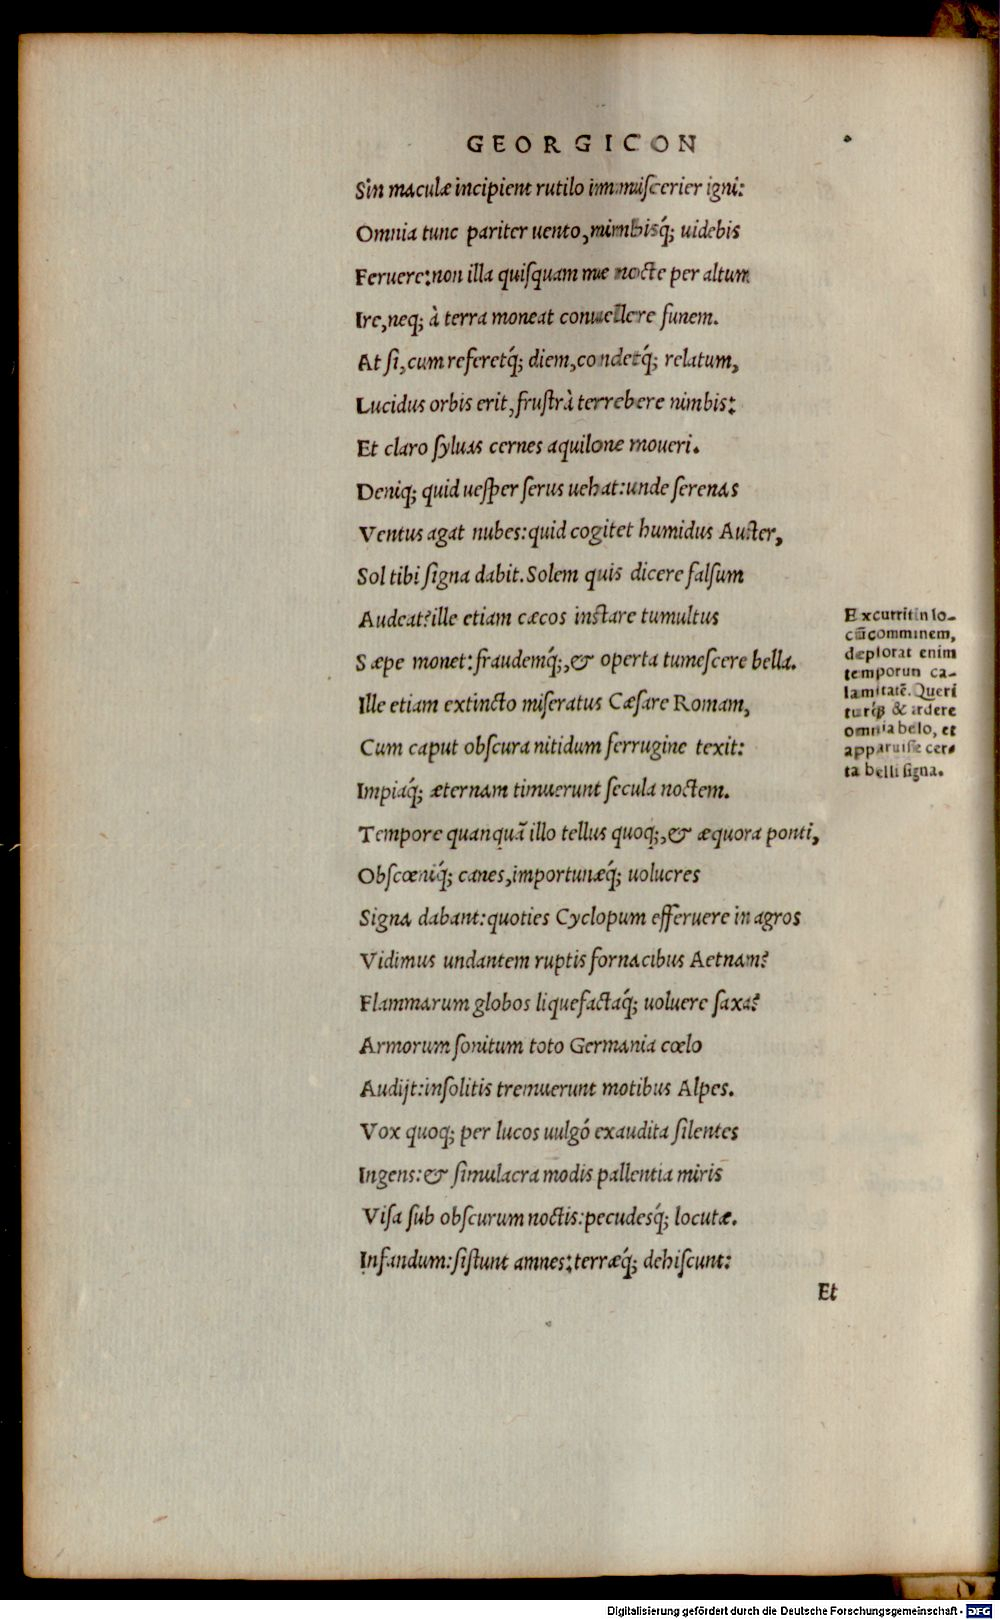 GEORGICON
Sin maculæ incipient rutilo immiſcerier igni:
Omnia tunc pariter uento, nimbisq́; uidebis
Feruere: non illa quiſquam me nocte per altum
Ire, neq; à terra moneat conuellere funem.
At ſi, cum referetq́; diem, condetq́; relatum,
Lucidus orbis erit, fruſtrà terrebere nimbis:
Et claro ſyluas cernes aquilone moueri.
Deniq; quid ueſper ſerus uehat: unde ſerenas
Ventus agat nubes: quid cogitet humidus Auſter,
Sol tibi ſigna dabit. Solem quis dicere falſum
Audeat? ille etiam cæcos inſtare tumultus
Sæpe monet: fraudemq́;, & operta tumeſcere bella.
Ille etiam extincto miſeratus Cæſare Romam,
Cum caput obſcura nitidum ferrugine texit:
Impiaq́; æternam timuerunt ſecula noctem.
Tempore quanquã illo tellus quoq;, & æquora ponti,
Obſcœniq́; canes, importunæq́; uolucres
Signa dabant: quoties Cyclopum efferuere in agros
Vidimus undantem ruptis fornacibus Aetnam?
Flammarum globos liquefactaq́; uoluere ſaxa?
Armorum ſonitum toto Germania cœlo
Audijt: inſolitis tremuerunt motibus Alpes.
Vox quoq; per lucos uulgó exaudita ſilentes
Ingens: & ſimulacra modis pallentia miris
Viſa ſub obſcurum noctis: pecudesq́; locutæ.
Infandum: ſiſtunt amnes: terræq́; dehiſcunt:
Et
Excurrit in lo-
cũ comminem,
dæplorat enim
temporun ca-
lamitatẽ. Queri
turq́; & ardere
omnia belo, et
apparuiſſe cer-
ta belli ſigna.
Digitalisierung gefördert durch die Deutsche Forschungsgemeinschaft - DFG